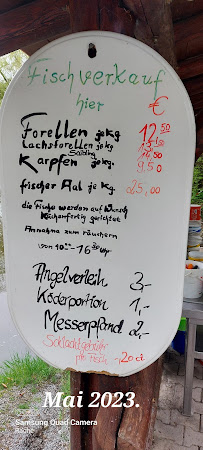 Fischverkauf
hier €
Forellen je kg. 12,50
Lachsforellen je kg.
Saibling 16,50
Karpfen je kg. 9,50
frischer Aal je kg 25,00
die Fische werden auf Wunsch
Küchenfertig gerichtet
Annahme zum räuchern
von 10⁰⁰-16³⁰ Uhr
Angelverleih 3,-
Köderportion 1,-
Messerpfand 2,-
Schlachtgebühr
pro Fisch -,20 ct
Mai 2023.
Samsung Quad Camera